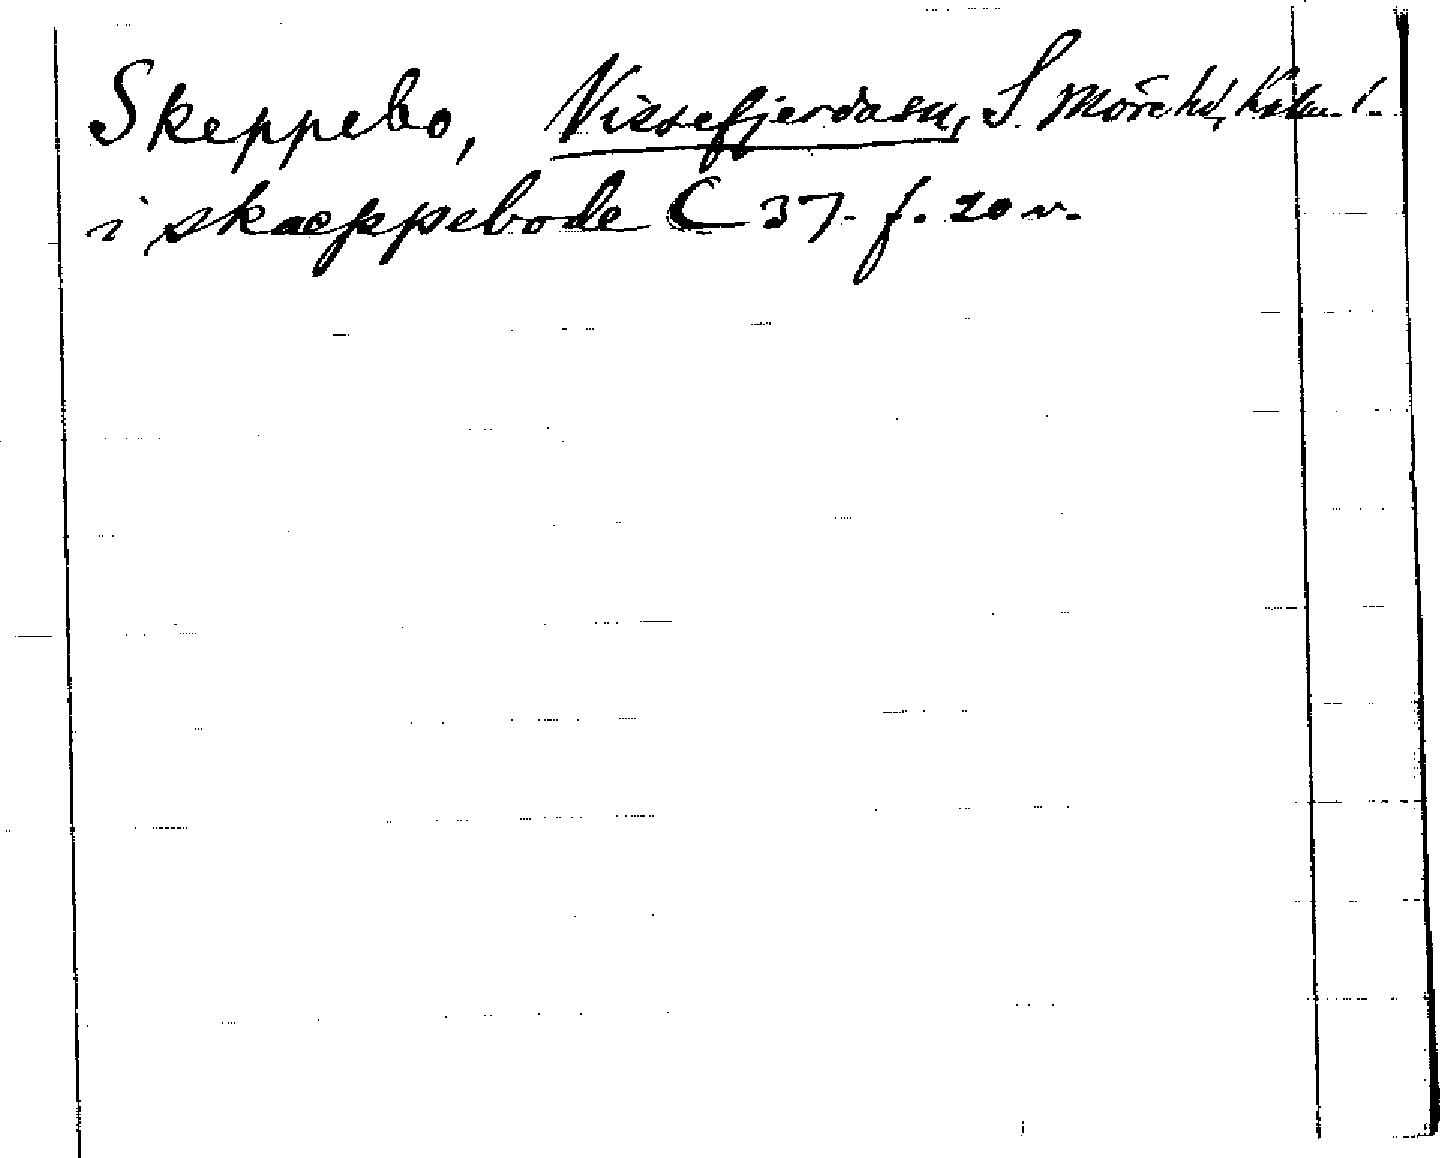 Skeppebo, Vissefjerda sn, S. Möre hd, Kalm. l.
i skaeppebode C 37. f. 20 v.